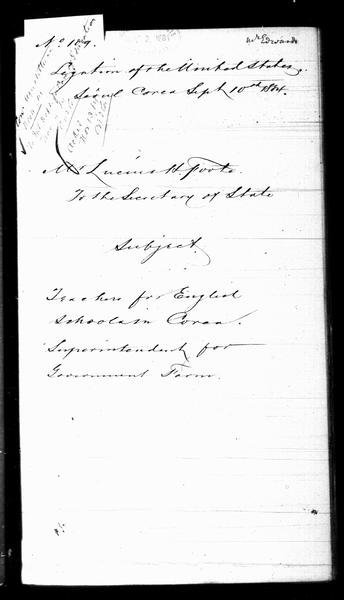 No 109.
Mr Edwards
Legation of the United States.
Seoul Corea Sept 10th 1884.
Mr Lucius H Foote.
To the Secretary of State
Subject.
Teachers for English
Schools in Corea.
Superintendent for
Government Farm.